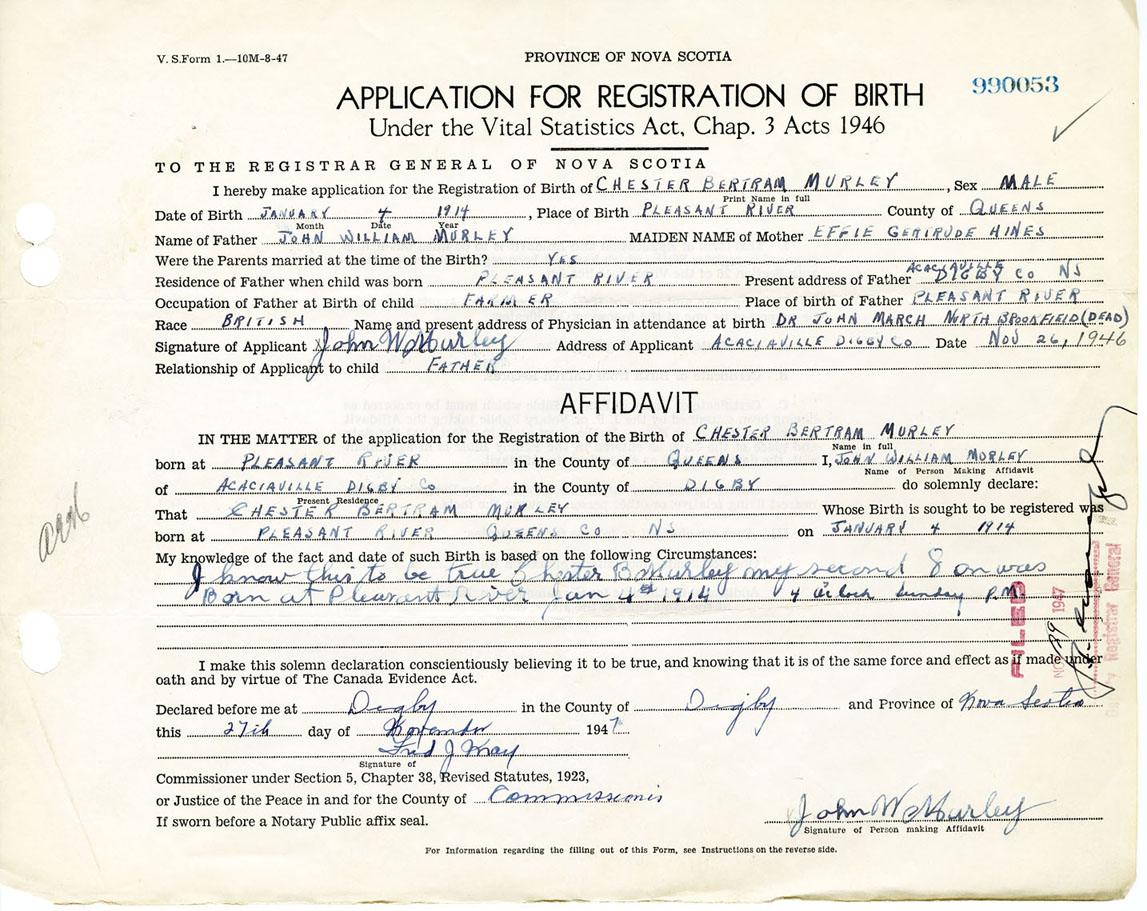 V. S.Form 1.—10M-8-47
PROVINCE OF NOVA SCOTIA
990053
APPLICATION FOR REGISTRATION OF BIRTH
Under the Vital Statistics Act, Chap. 3 Acts 1946
TO THE REGISTRAR GENERAL OF NOVA SCOTIA
I hereby make application for the Registration of Birth of CHESTER BERTRAM MURLEY, Sex MALE
Print Name in full
Date of Birth JANUARY 4 1914, Place of Birth PLEASANT RIVER County of QUEENS
Month Date Year
Name of Father JOHN WILLIAM MURLEY MAIDEN NAME of Mother EFFIE GERTRUDE HINES
Were the Parents married at the time of the Birth? YES
ACACIAVILLE
Residence of Father when child was born PLEASANT RIVER Present address of Father DIGBY CO NS
Occupation of Father at Birth of child FARMER Place of birth of Father PLEASANT RIVER
Race BRITISH Name and present address of Physician in attendance at birth DR JOHN MARCH NORTH BROOKFIELD (DEAD)
Signature of Applicant x John W Murley Address of Applicant ACACIAVILLE DIGBY CO Date NOV 26, 1946
Relationship of Applicant to child FATHER
AFFIDAVIT
IN THE MATTER of the application for the Registration of the Birth of CHESTER BERTRAM MURLEY
Name in full
born at PLEASANT RIVER in the County of QUEENS I, JOHN WILLIAM MURLEY
Name of Person Making Affidavit
of ACACIAVILLE DIGBY CO in the County of DIGBY do solemnly declare:
Present Residence
That CHESTER BERTRAM MURLEY Whose Birth is sought to be registered was
born at PLEASANT RIVER QUEENS CO NS on JANUARY 4 1914
My knowledge of the fact and date of such Birth is based on the following Circumstances:
I know this to be true Chester B Murley my second Son was
Born at Pleasant River Jan 4th 1914 4 o'clock Sunday P.M.
I make this solemn declaration conscientiously believing it to be true, and knowing that it is of the same force and effect as if made under
oath and by virtue of The Canada Evidence Act.
Declared before me at Digby in the County of Digby and Province of Nova Scotia
this 27th day of November 1947
Fred J
Signature of
Commissioner under Section 5, Chapter 38, Revised Statutes, 1923,
or Justice of the Peace in and for the County of Commissioner
If sworn before a Notary Public affix seal.
John W Murley
Signature of Person making Affidavit
For Information regarding the filling out of this Form, see Instructions on the reverse side.
FILED
1947
Registrar General